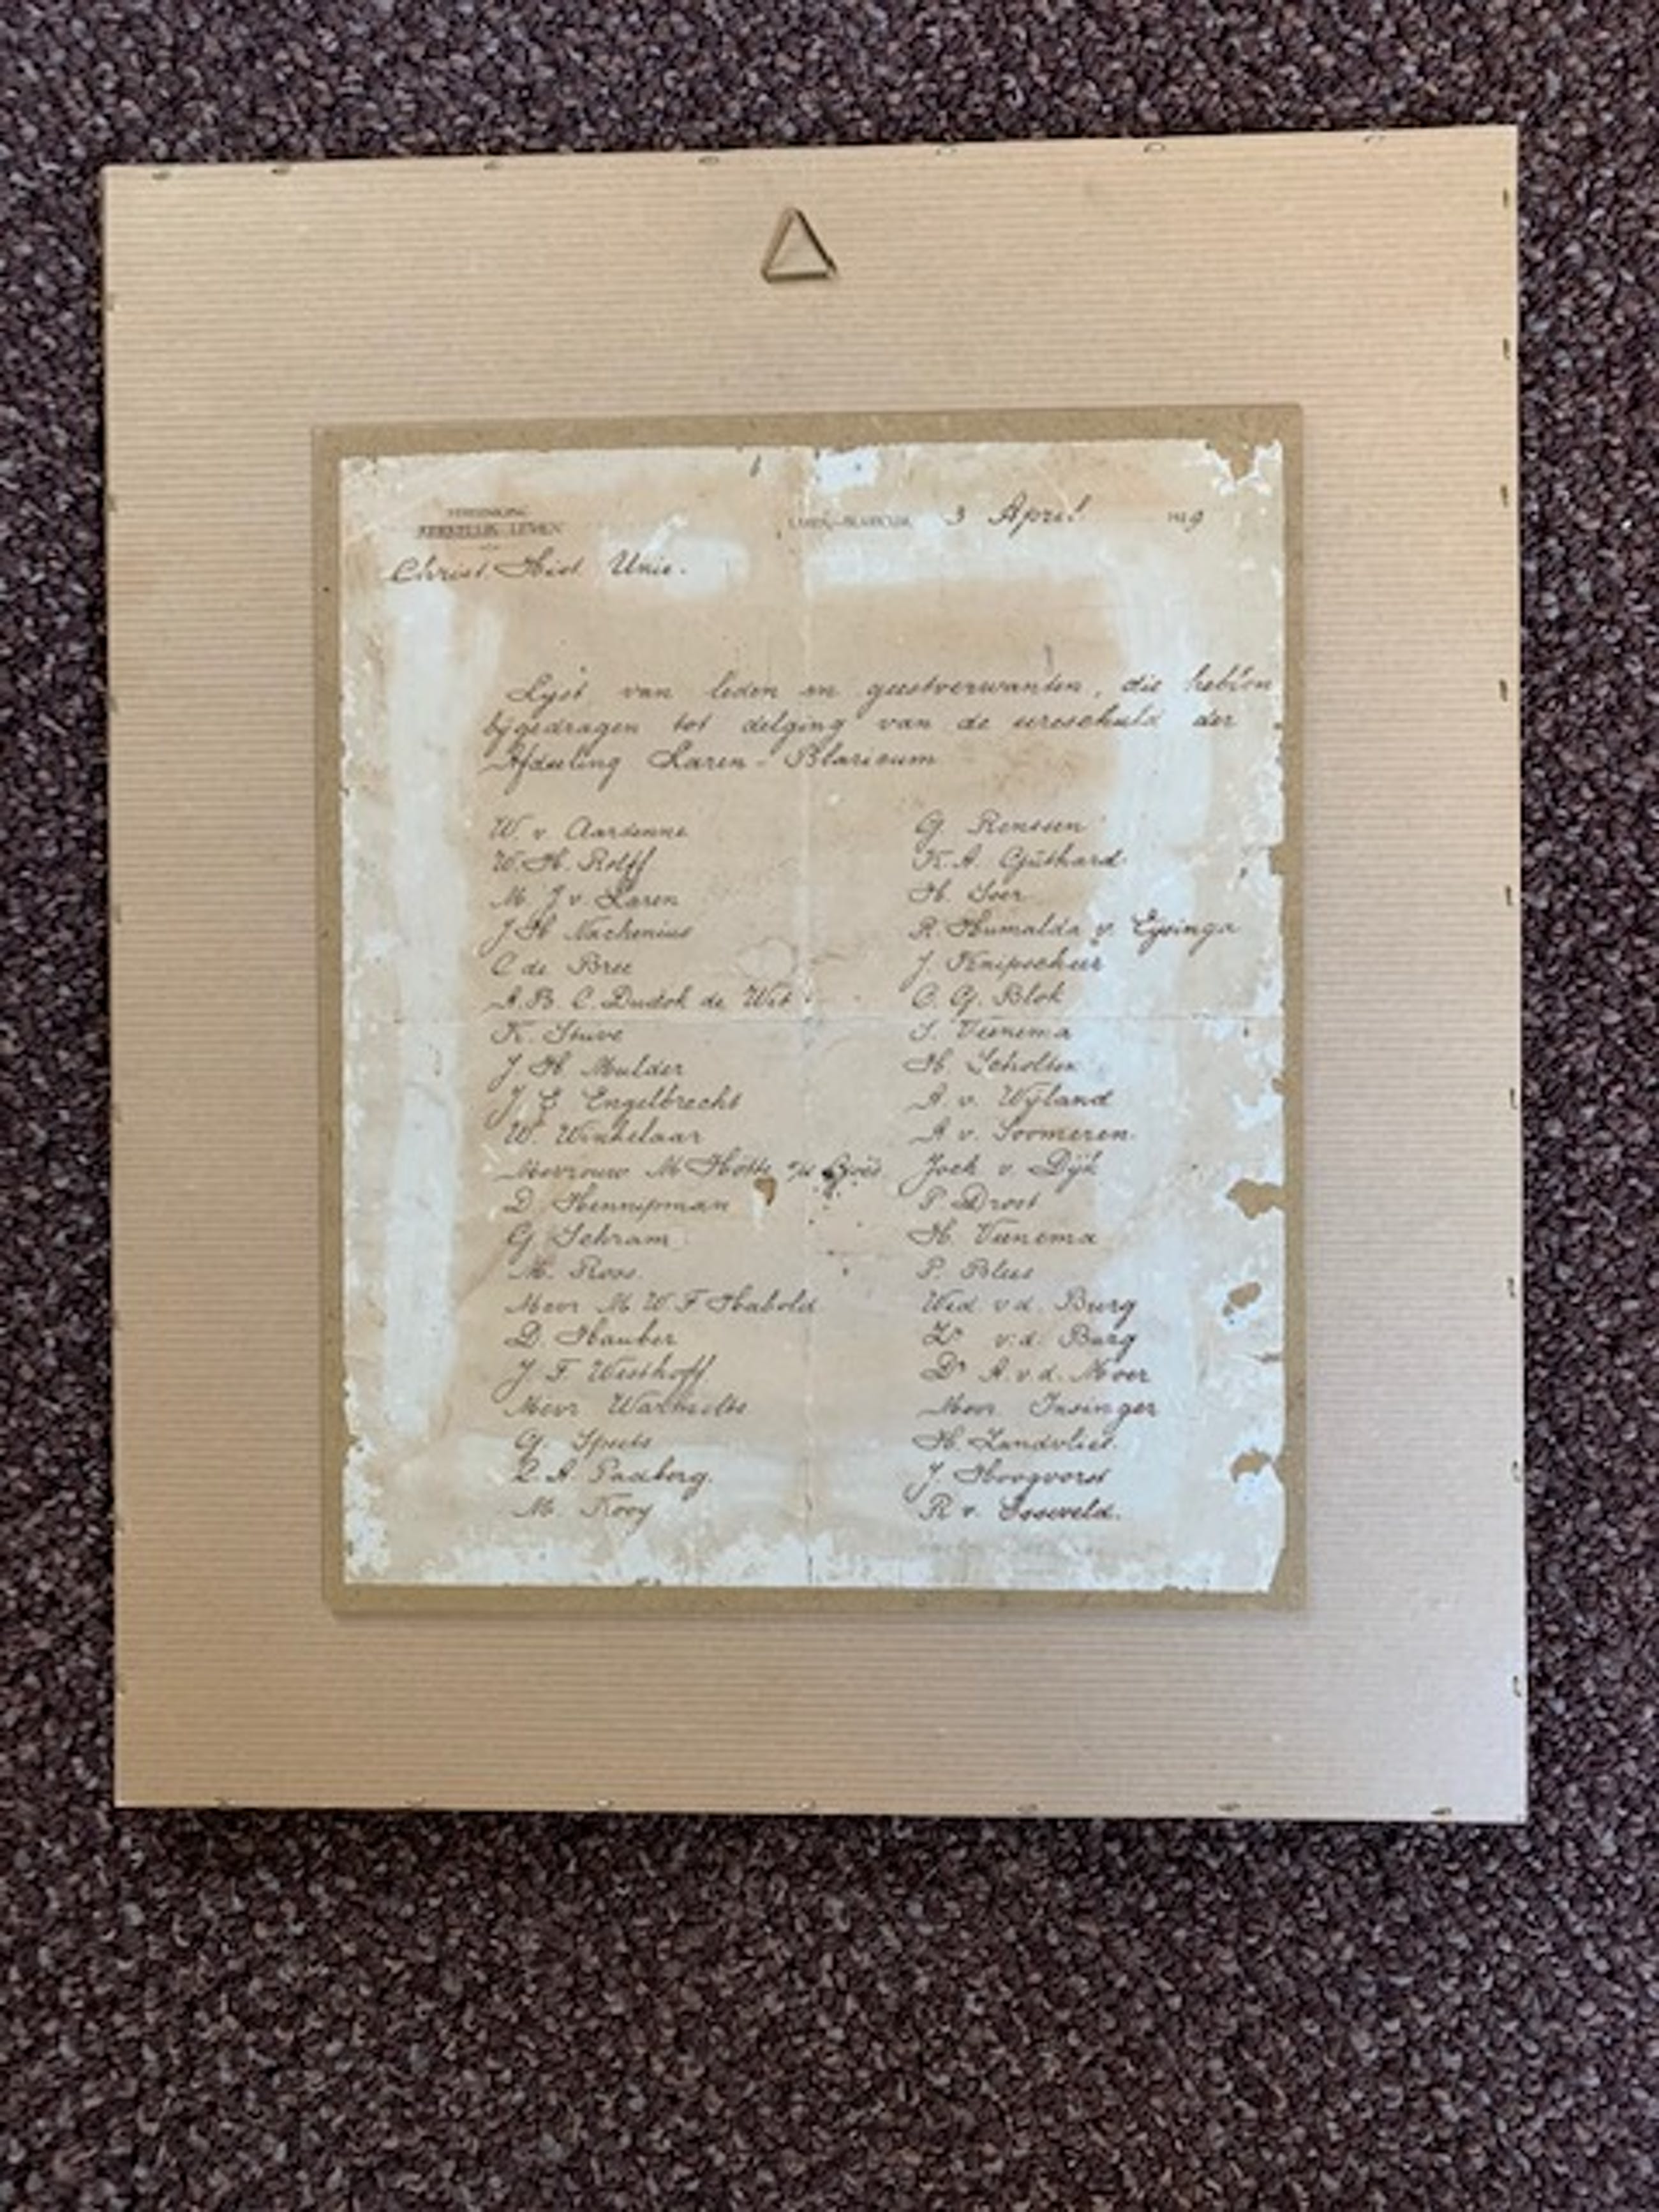 VEREENIGING
KERKELIJK LEVEN
LAREN-BLARICUM, 3 April 19
Christ. Hist. Unie.
Lijst van leden en geestverwanten, die hebben
bijgedragen tot delging van de eereschuld der
Afdeeling Laren-Blaricum
W. v. Aardenne
G. Renssen
W. H. Rolff
K. A. Güthard
M. J v. Laren
H. Soer
J H Nachenius
R. Humalda v. Eysinga
C de Bree
J. Knipscheer
A. B. C. Dudok de Wit
C. G. Blok
K. Stuve
S. Veenema
J. H. Mulder
H. Scholten
J. E Engelbrecht
A. v. Wijland
W. Winkelaar
A v. Soomeren
Mevrouw M
Joch v. Dijk
D. Hennipman
P. Drost
G. Schram
H. Veenema
M. Roos.
P. Blees
Mevr M. W. F Habold
Wed. v d. Burg
D. Hauber
Zr v. d. Burg
J. F. Westhoff
Dr A. v. d. Moer
Mevr Warmolts
Mevr. Insinger
G. Speets
H. Zandvliet.
R. A. Padberg.
J. Hoogvorst
M. Kooy
R v. Esseveld.